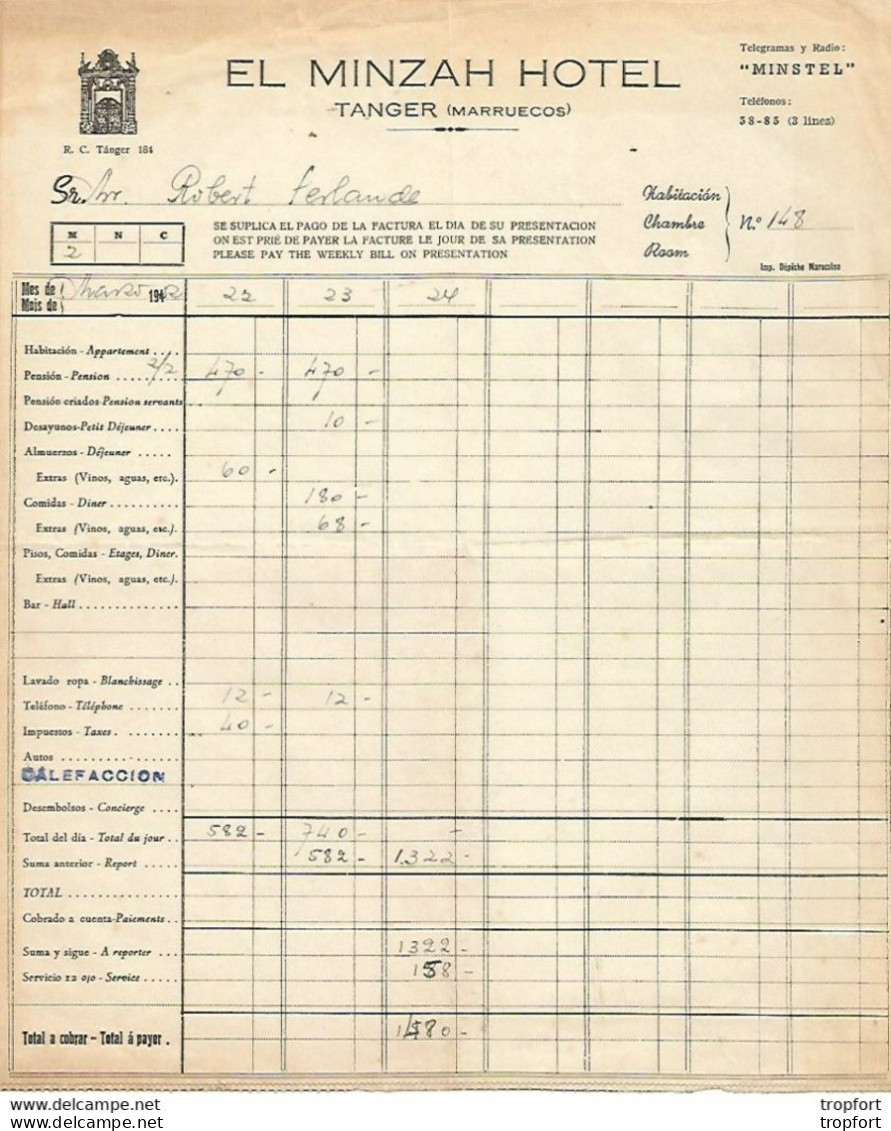 EL MINZAH HOTEL
TANGER (MARRUECOS)
R. C. Tánger 184
Telegramas y Radio:
"MINSTEL"
Teléfonos:
38-85 (3 lines)
Robert
Habitación
Chambre
Room
N.º 148
M N C
2
SE SUPLICA EL PAGO DE LA FACTURA EL DIA DE SU PRESENTACION
ON EST PRIÉ DE PAYER LA FACTURE LE JOUR DE SA PRESENTATION
PLEASE PAY THE WEEKLY BILL ON PRESENTATION
Imp. Dépêche Marocaine
Mes de Marzo 194
Mois de
22 23 24
Habitación - Appartement ....
Pensión - Pension ........ 2/2 470 - 470 -
Pensión criados-Pension servants ..
Desayunos-Petit Déjeuner .... 10 -
Almuerzos - Déjeuner .....
Extras (Vinos, aguas, etc.). 60 -
Comidas - Diner .......... 180 -
Extras (Vinos, aguas, etc.). 68 -
Pisos, Comidas - Etages, Diner.
Extras (Vinos, aguas, etc.).
Bar - Hall ..............
Lavado ropa - Blanchissage ..
Teléfono - Téléphone ..... 12 - 12 -
Impuestos - Taxes. ...... 40 -
Autos ..............
CALEFACCION
Desembolsos - Concierge ....
Total del día - Total du jour .. 582 - 740 - -
Suma anterior - Report ..... 582 - 1.322 -
TOTAL ..............
Cobrado a cuenta-Paiements ..
Suma y sigue - A reporter ... 1322 -
Servicio 12 o/o - Service ..... 158 -
Total a cobrar - Total á payer . 1480 -
tropfort
tropfort